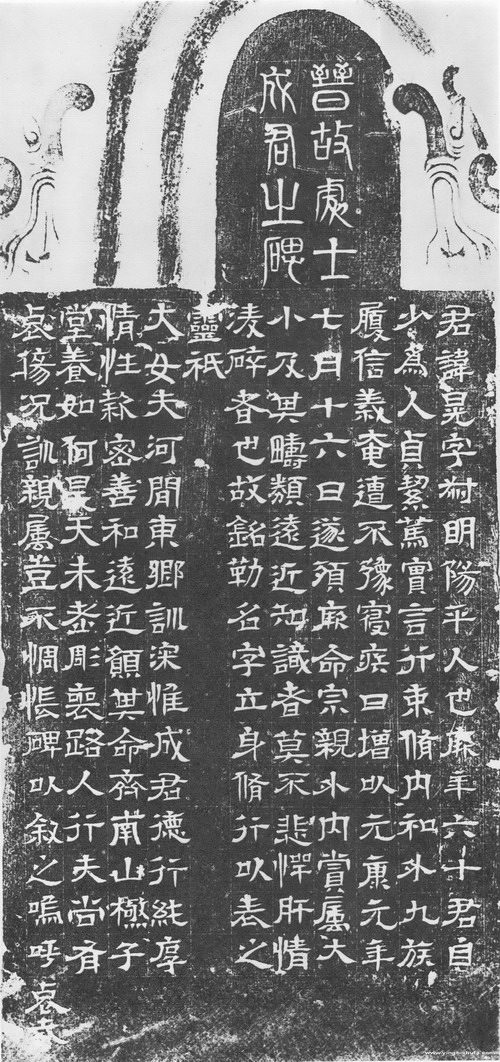 晉故處士
成君之碑
君諱晃字叔明陽平人也廉年六十君自
少為人貞絜篤實言行束脩內和外九族
履信義奄遭不豫寑疾日增以元康元年
七月十六日遂殞厥命宗親外內賞屬大
小及其疇類遠近知識者莫不悲憚肝情
淩碎者也故銘勒名字立身脩行以表之
靈祇
大女夫河間東鄉訓深惟成君德行純厚
情性款密善和遠近願其命齊南山極子
堂養如何昊天未老彫喪路人行夫尚有
哀傷況訓親屬豈不惆悵碑以敘之嗚呼哀